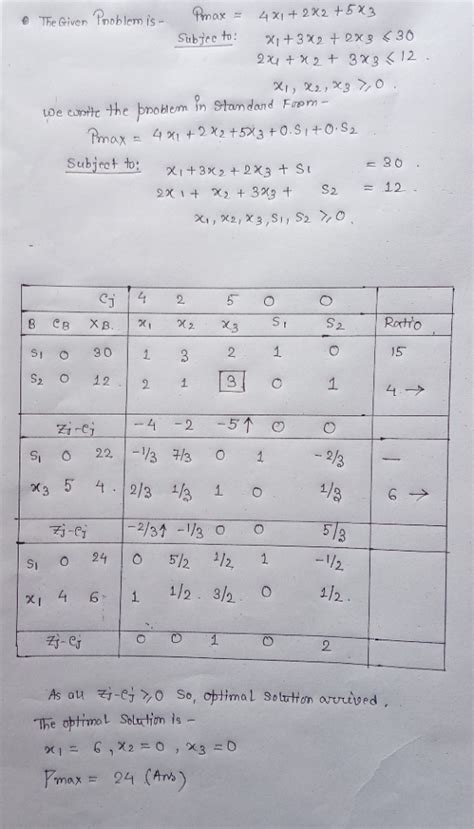 • The Given Problem is - Pmax = 4x1 + 2x2 + 5x3
Subject to: x1 + 3x2 + 2x3 ≤ 30
2x1 + x2 + 3x3 ≤ 12
x1, x2, x3 ≥ 0.
We write the problem in Standard Form -
Pmax = 4x1 + 2x2 + 5x3 + 0.S1 + 0.S2
Subject to: x1 + 3x2 + 2x3 + S1 = 30.
2x1 + x2 + 3x3 + S2 = 12.
x1, x2, x3, S1, S2 ≥ 0.
Cj 4 2 5 0 0
B CB XB. x1 x2 x3 S1 S2 Ratio
S1 0 30 1 3 2 1 0 15
S2 0 12. 2 1 3 0 1 4 →
Zj-Cj -4 -2 -5↑ 0 0
S1 0 22 -1/3 7/3 0 1 -2/3 —
x3 5 4. 2/3 1/3 1 0 1/3 6 →
Zj-Cj -2/3↑ -1/3 0 0 5/3
S1 0 24 0 5/2 1/2 1 -1/2
x1 4 6 1 1/2. 3/2. 0 1/2.
Zj-Cj 0 0 1 0 2
As all Zj-Cj ≥ 0 So, optimal Solution arrived.
The optimal Solution is -
x1 = 6, x2 = 0, x3 = 0
Pmax = 24 (Ans)